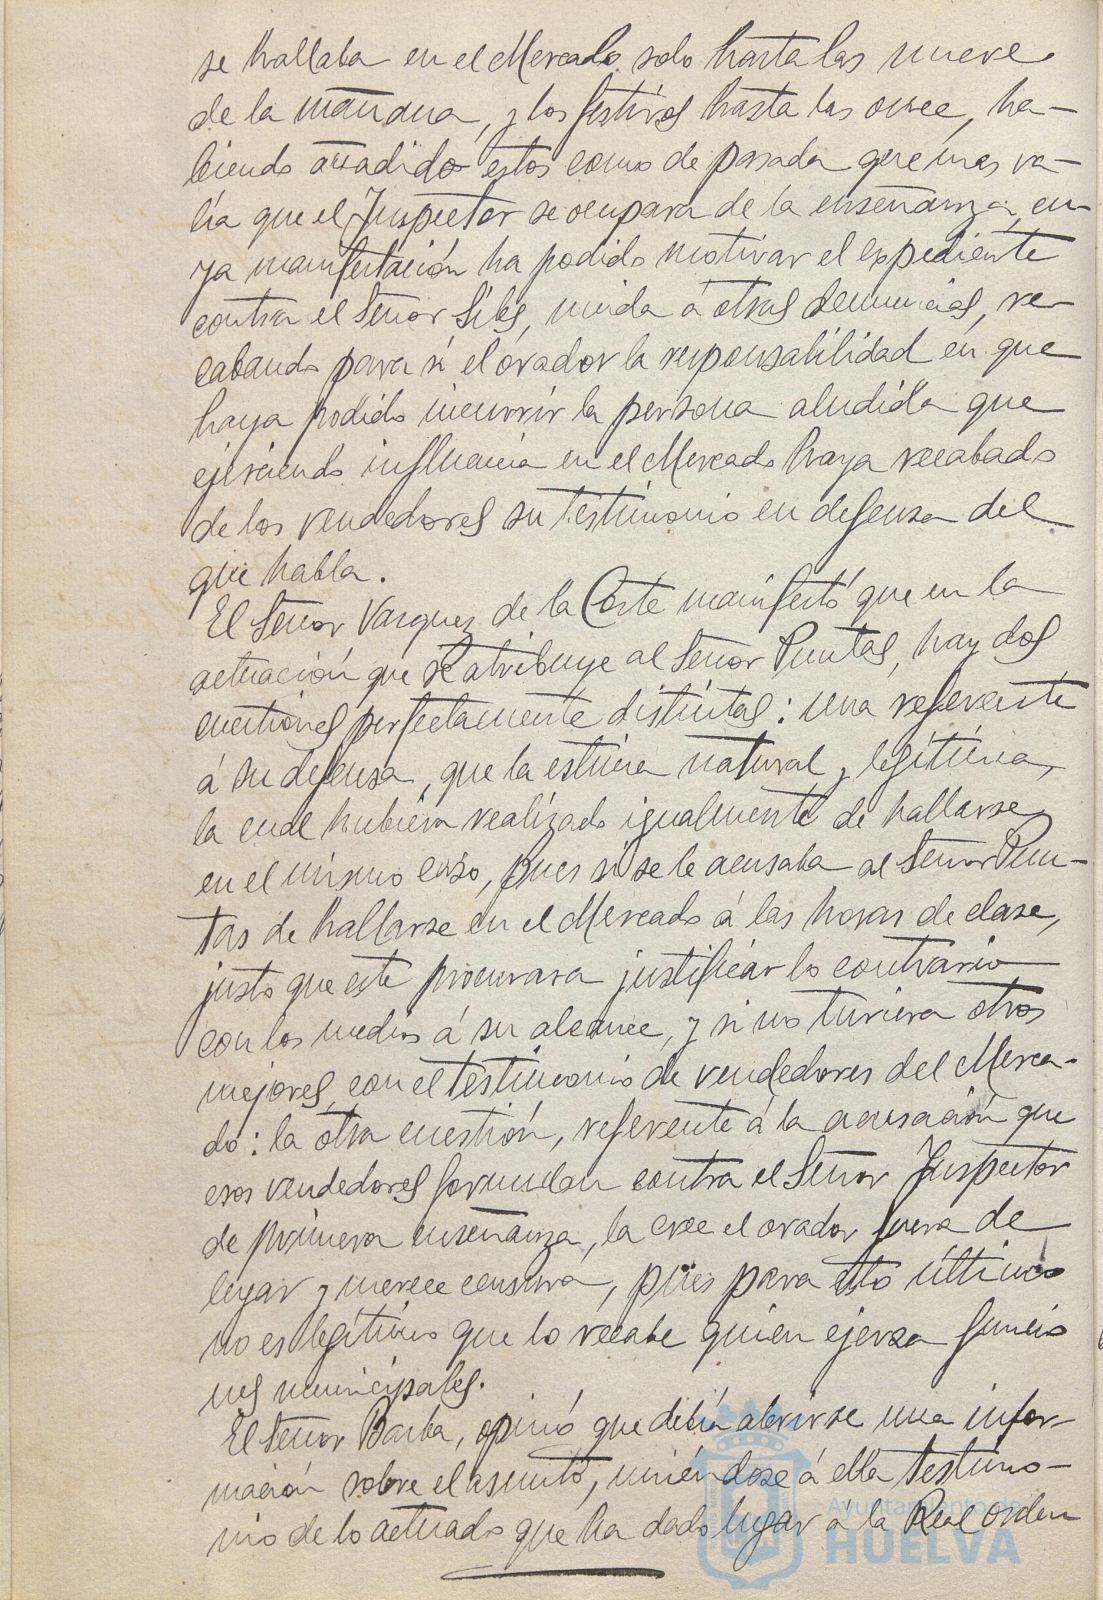 se hallaba en el Mercado solo hasta las nueve
de la mañana, y los festivos hasta las once, ha-
biendo añadido estos como de pasada que mas va-
lía que el Inspector se ocupara de la enseñanza, cu-
ya manifestación ha podido motivar el expediente
contra el Señor Siles, unida á otras denuncias, re-
cabando para sí el orador la responsabilidad en que
haya podido incurrir la persona aludida que
ejerciendo influencia en el Mercado haya recabado
de los vendedores su testimonio en defensa del
que habla.
El Señor Vazquez de la Corte manifestó que en la
actuación que se atribuye al Señor Puntas, hay dos
cuestiones perfectamente distintas: una referente
á su defensa, que la estima natural y legítima,
la cual hubiera realizado igualmente de hallarse
en el mismo caso, pues si se le acusaba al Señor Pun-
tas de hallarse en el Mercado á las horas de clase,
justo que este procurara justificar lo contrario
con los medios á su alcance, y si no tuviera otros
mejores, con el testimonio de vendedores del Merca-
do: la otra cuestión, referente á la acusación que
esos vendedores formulan contra el Señor Inspector
de primera enseñanza, la cree el orador fuera de
lugar y merece censura, pues para esto último
no es legítimo que lo recabe quien ejerza funcio
nes municipales.
El Señor Barba, opinó que debía abrirse una infor-
mación sobre el asunto, uniéndose á ella testimo-
nio de lo actuado que ha dado lugar á la Real orden
Ayuntamiento de
HUELVA